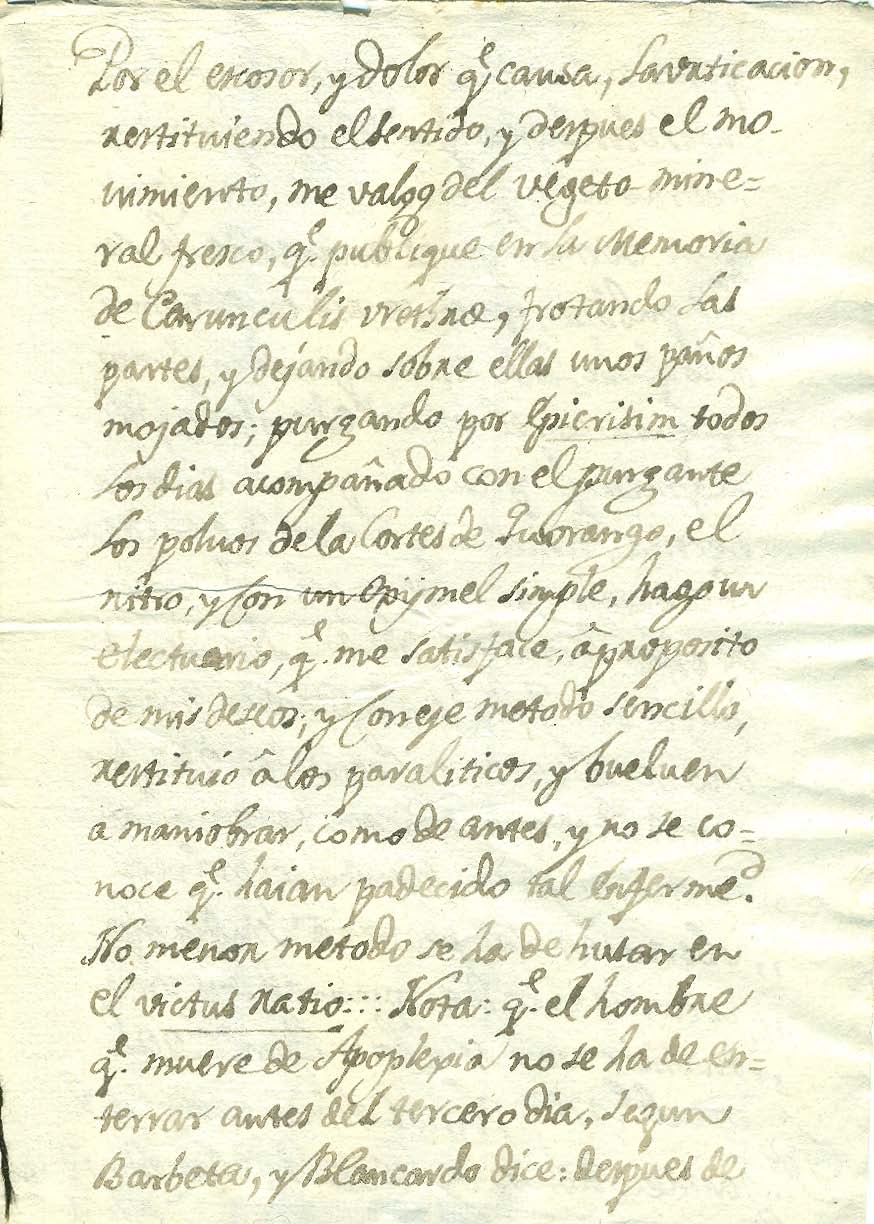 Por el escosor, y dolor q.e causa, la vrticacion,
restituiendo el sentido, y despues el mo-
uimiento, me valgo del vegeto mine=
ral fresco, q.e publique en la Memoria
de Carunculis vrethræ, frotando las
partes, y dejando sobre ellas unos paños
mojados; purgando por Epicrisim todos
los dias acompañado con el purgante
los poluos de la Cortes de Quorango, el
nitro, y con un Opijmel simple, hago un
electuario, q.e me satisface, â proposito
de mis deseos; y con eje metodo sencillo,
restituio â los paraliticos, y bueluen
a maniobrar, como de antes, y no se co=
noce q.e haian padecido tal enferme.d
No menor metodo se ha de husar en
el victus ratio::: Nota: q.e el hombre
q.e muere de Apoplexia no se ha de en=
terrar antes del tercero dia, segun
Barbeta, y Blancardo dice: despues de